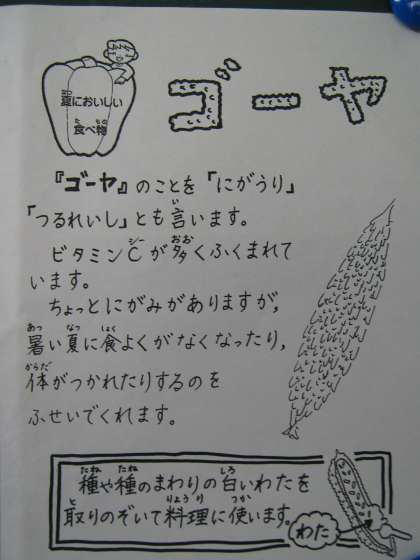 夏においしい
食べ物
ゴーヤ
『ゴーヤ』のことを「にがうり」
「つるれいし」とも言います。
ビタミンCが多くふくまれて
います。
ちょっとにがみがありますが,
暑い夏に食よくがなくなったり,
体がつかれたりするのを
ふせいでくれます。
種や種のまわりの白いわたを
取りのぞいて料理に使います。
わた